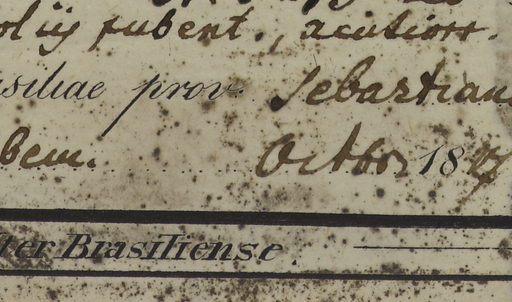 oliis pubent., acutior.
asiliae prov. Sebastian
bem. Octbr 18
ter Brasiliense.